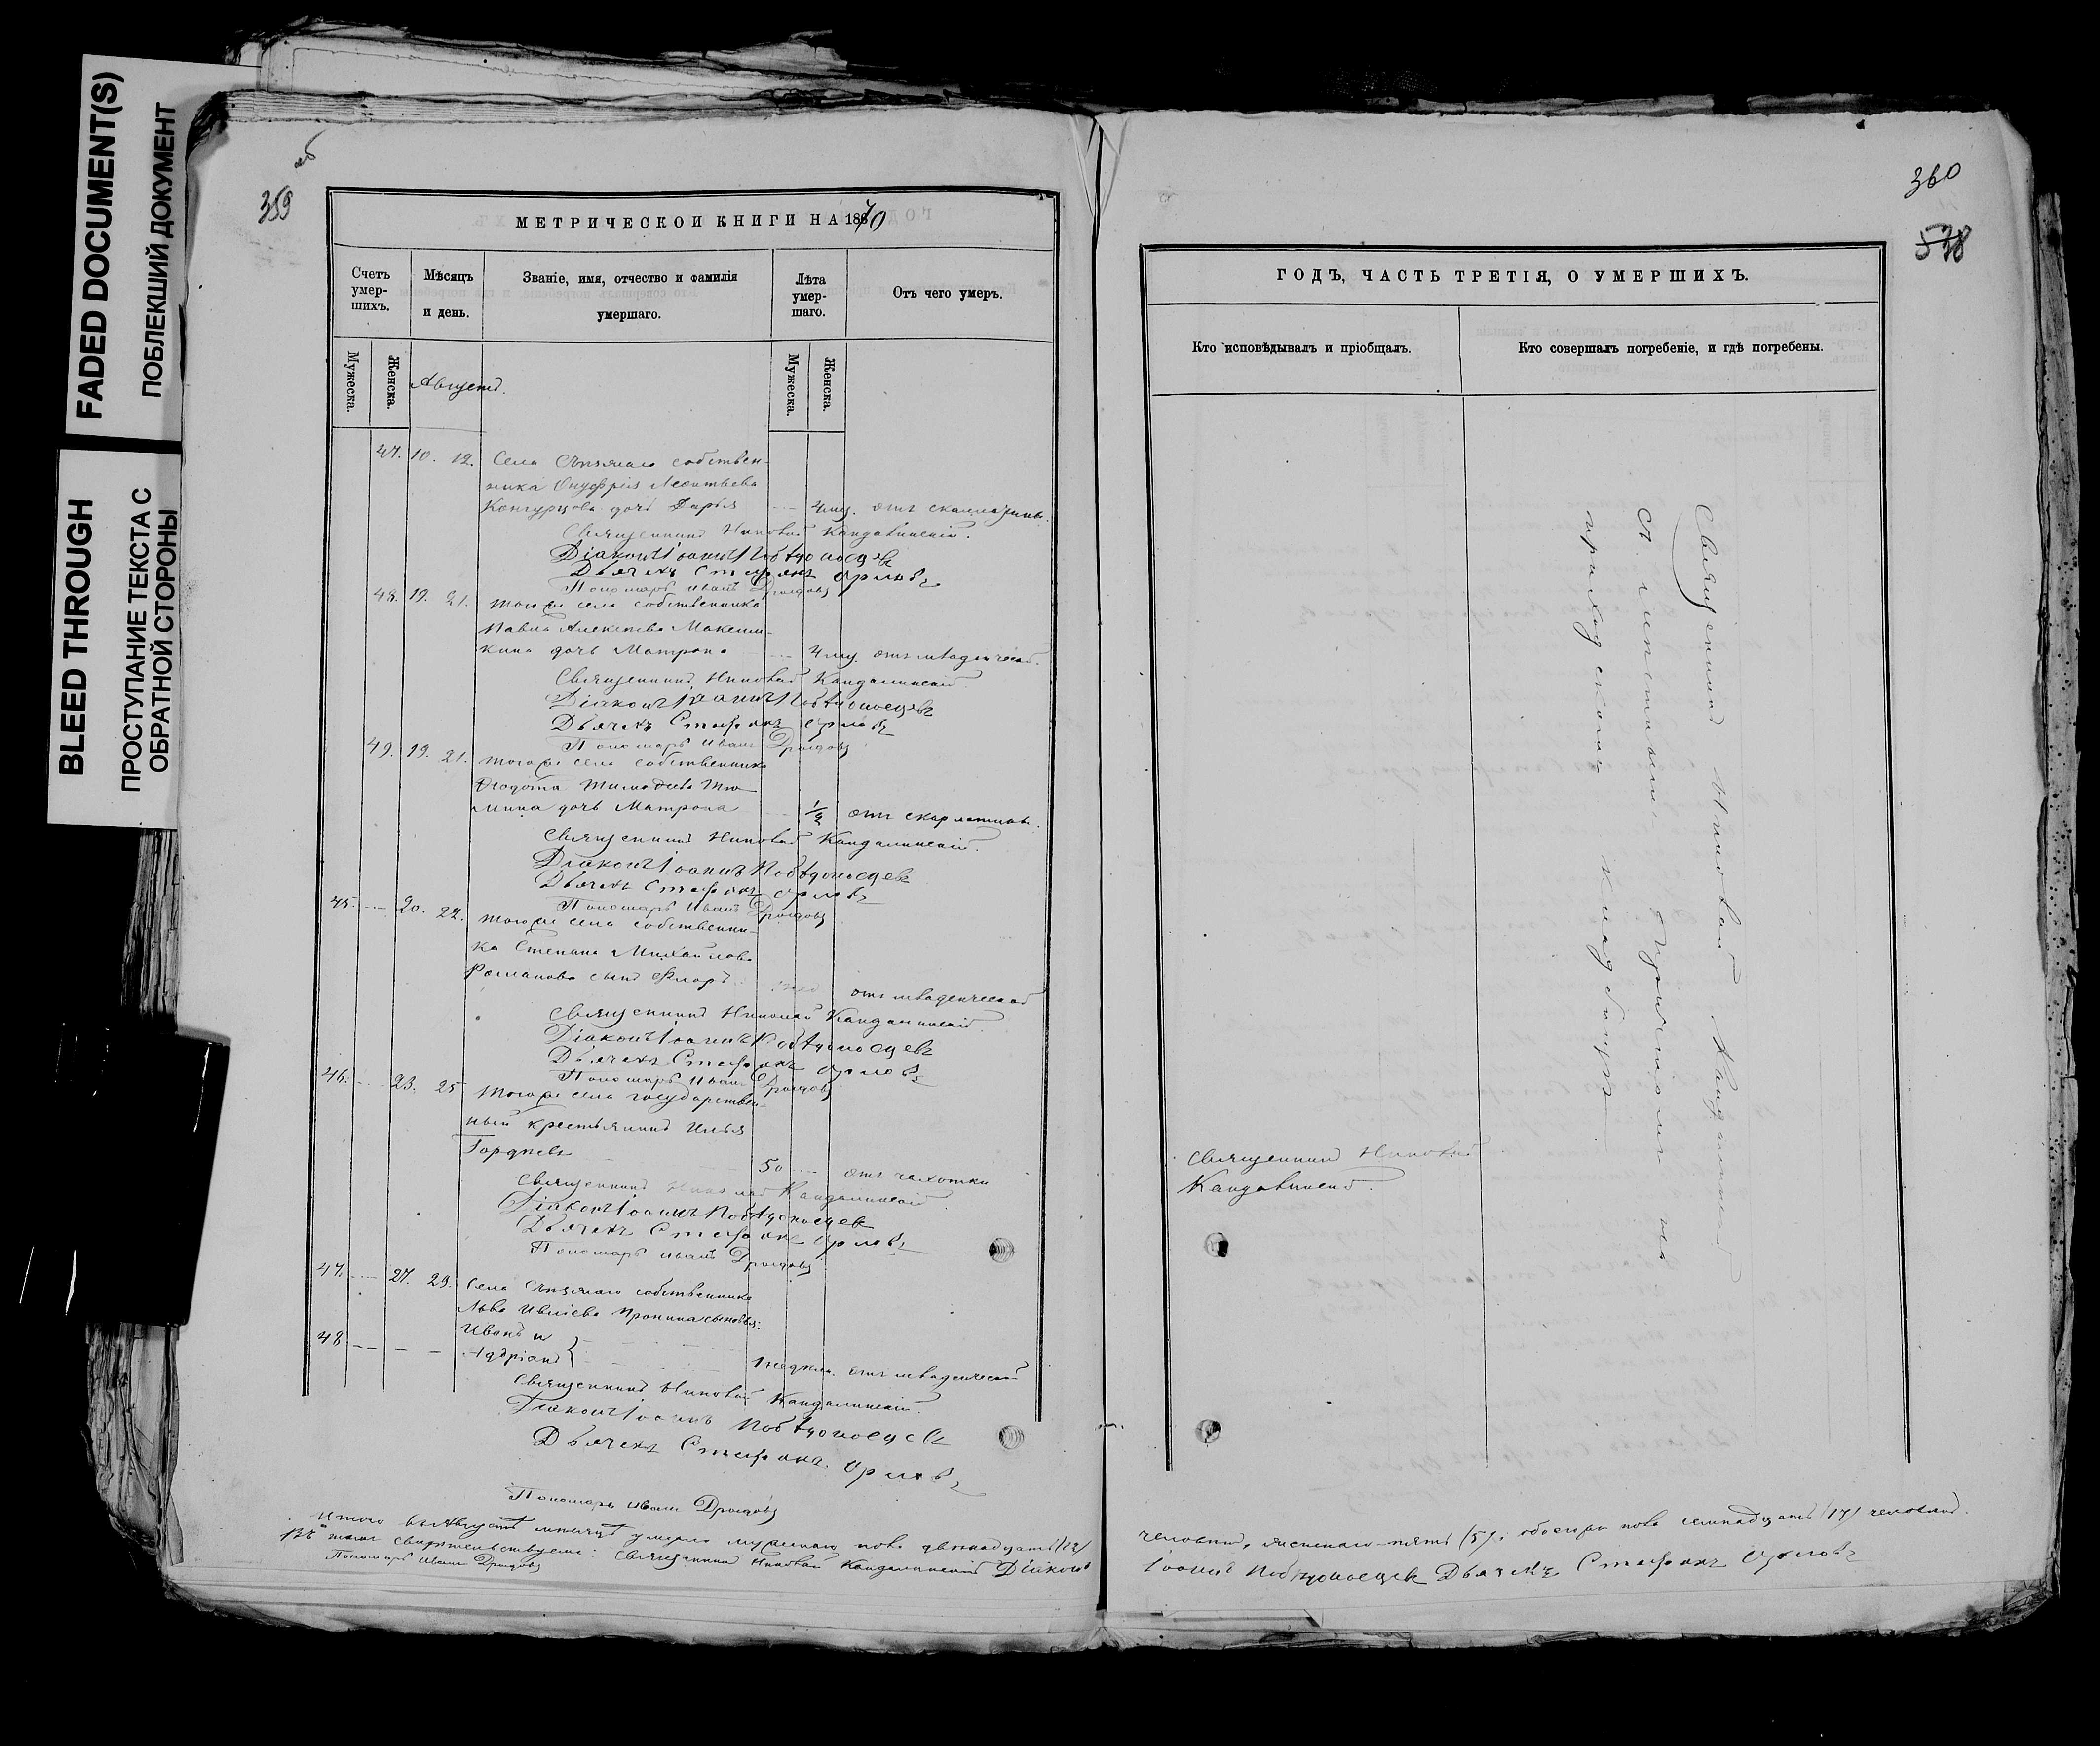 FADED DOCUMENT(S)
ПОБЛЕКШИЙ ДОКУМЕНТ
BLEED THROUGH
ПРОСТУПАНИЕ ТЕКСТА С
ОБРАТНОЙ СТОРОНЫ
359
МЕТРИЧЕСКОЙ КНИГИ НА 1870
Счетъ умер-шихъ.
Мѣсяцъ и день.
Званіе, имя, отчество и фамилія умершаго.
Лѣта умер-шаго.
Отъ чего умеръ.
Мужеска.
Женска.
Августъ.
Мужеска.
Женска.
47. 10. 12. Села собствен-
ника Онуфрія Леонтьева
дочь Дарья 4 мц. отъ скарлатины.
Священникъ Николай Кандалинскій.
Діаконъ Іоаннъ Побѣдоносцевъ
Дьячекъ Стефанъ Орловъ
Пономарь Иванъ Дроздовъ
48. 19. 21. Тогоже села собственника
Павла Алексѣева Максим-
кина дочь Матрона 4 мц. отъ младенческой.
Священникъ Николай Кандалинскій.
Діаконъ Іоаннъ Побѣдоносцевъ
Дьячекъ Стефанъ Орловъ
Пономарь Иванъ Дроздовъ
49. 19. 21. Тогоже села собственника
Ѳеодота Тимоѳеева
дочь Матрона отъ скарлатины.
Священникъ Николай Кандалинскій.
Діаконъ Іоаннъ Побѣдоносцевъ
Дьячекъ Стефанъ Орловъ
Пономарь Иванъ Дроздовъ
45. 20. 22. Тогоже села собственни-
ка Степана Михайлова
Романова сынъ Флоръ отъ младенческой
Священникъ Николай Кандалинскій.
Діаконъ Іоаннъ Побѣдоносцевъ
Дьячекъ Стефанъ Орловъ
Пономарь Иванъ Дроздовъ
46. 23. 25 Тогоже села государствен-
ный крестьянинъ Илья
Гордѣевъ 50 отъ чахотки
Священникъ Николай Кандалинскій.
Діаконъ Іоаннъ Побѣдоносцевъ
Дьячекъ Стефанъ Орловъ
Пономарь Иванъ Дроздовъ
47. 27. 29. Села собственника
Льва Ивліева Пронина сыновья:
Иванъ и
48 Адріанъ 1 недѣли. отъ младенческой
Священникъ Николай Кандалинскій.
Діаконъ Іоаннъ Побѣдоносцевъ
Дьячекъ Стефанъ Орловъ
Пономарь Иванъ Дроздовъ
Итого въ Августѣ мѣсяцѣ умерло мужескаго пола двѣнадцать (12)
Въ томъ свидѣтельствуемъ: Священникъ Николай Кандалинскій Діаконъ
Пономарь Иванъ Дроздовъ
360
538
ГОДЪ, ЧАСТЬ ТРЕТІЯ, О УМЕРШИХЪ.
Кто исповѣдывалъ и пріобщалъ.
Кто совершалъ погребеніе, и гдѣ погребены.
Священникъ Николай Кандалинскій
съ причтомъ на
приходскомъ кладбищѣ
Священникъ Николай
Кандалинскій.
человѣкъ, женскаго-пять (5), обоего пола семнадцать (17) человѣкъ.
Іоаннъ Побѣдоносцевъ Дьячекъ Стефанъ Орловъ